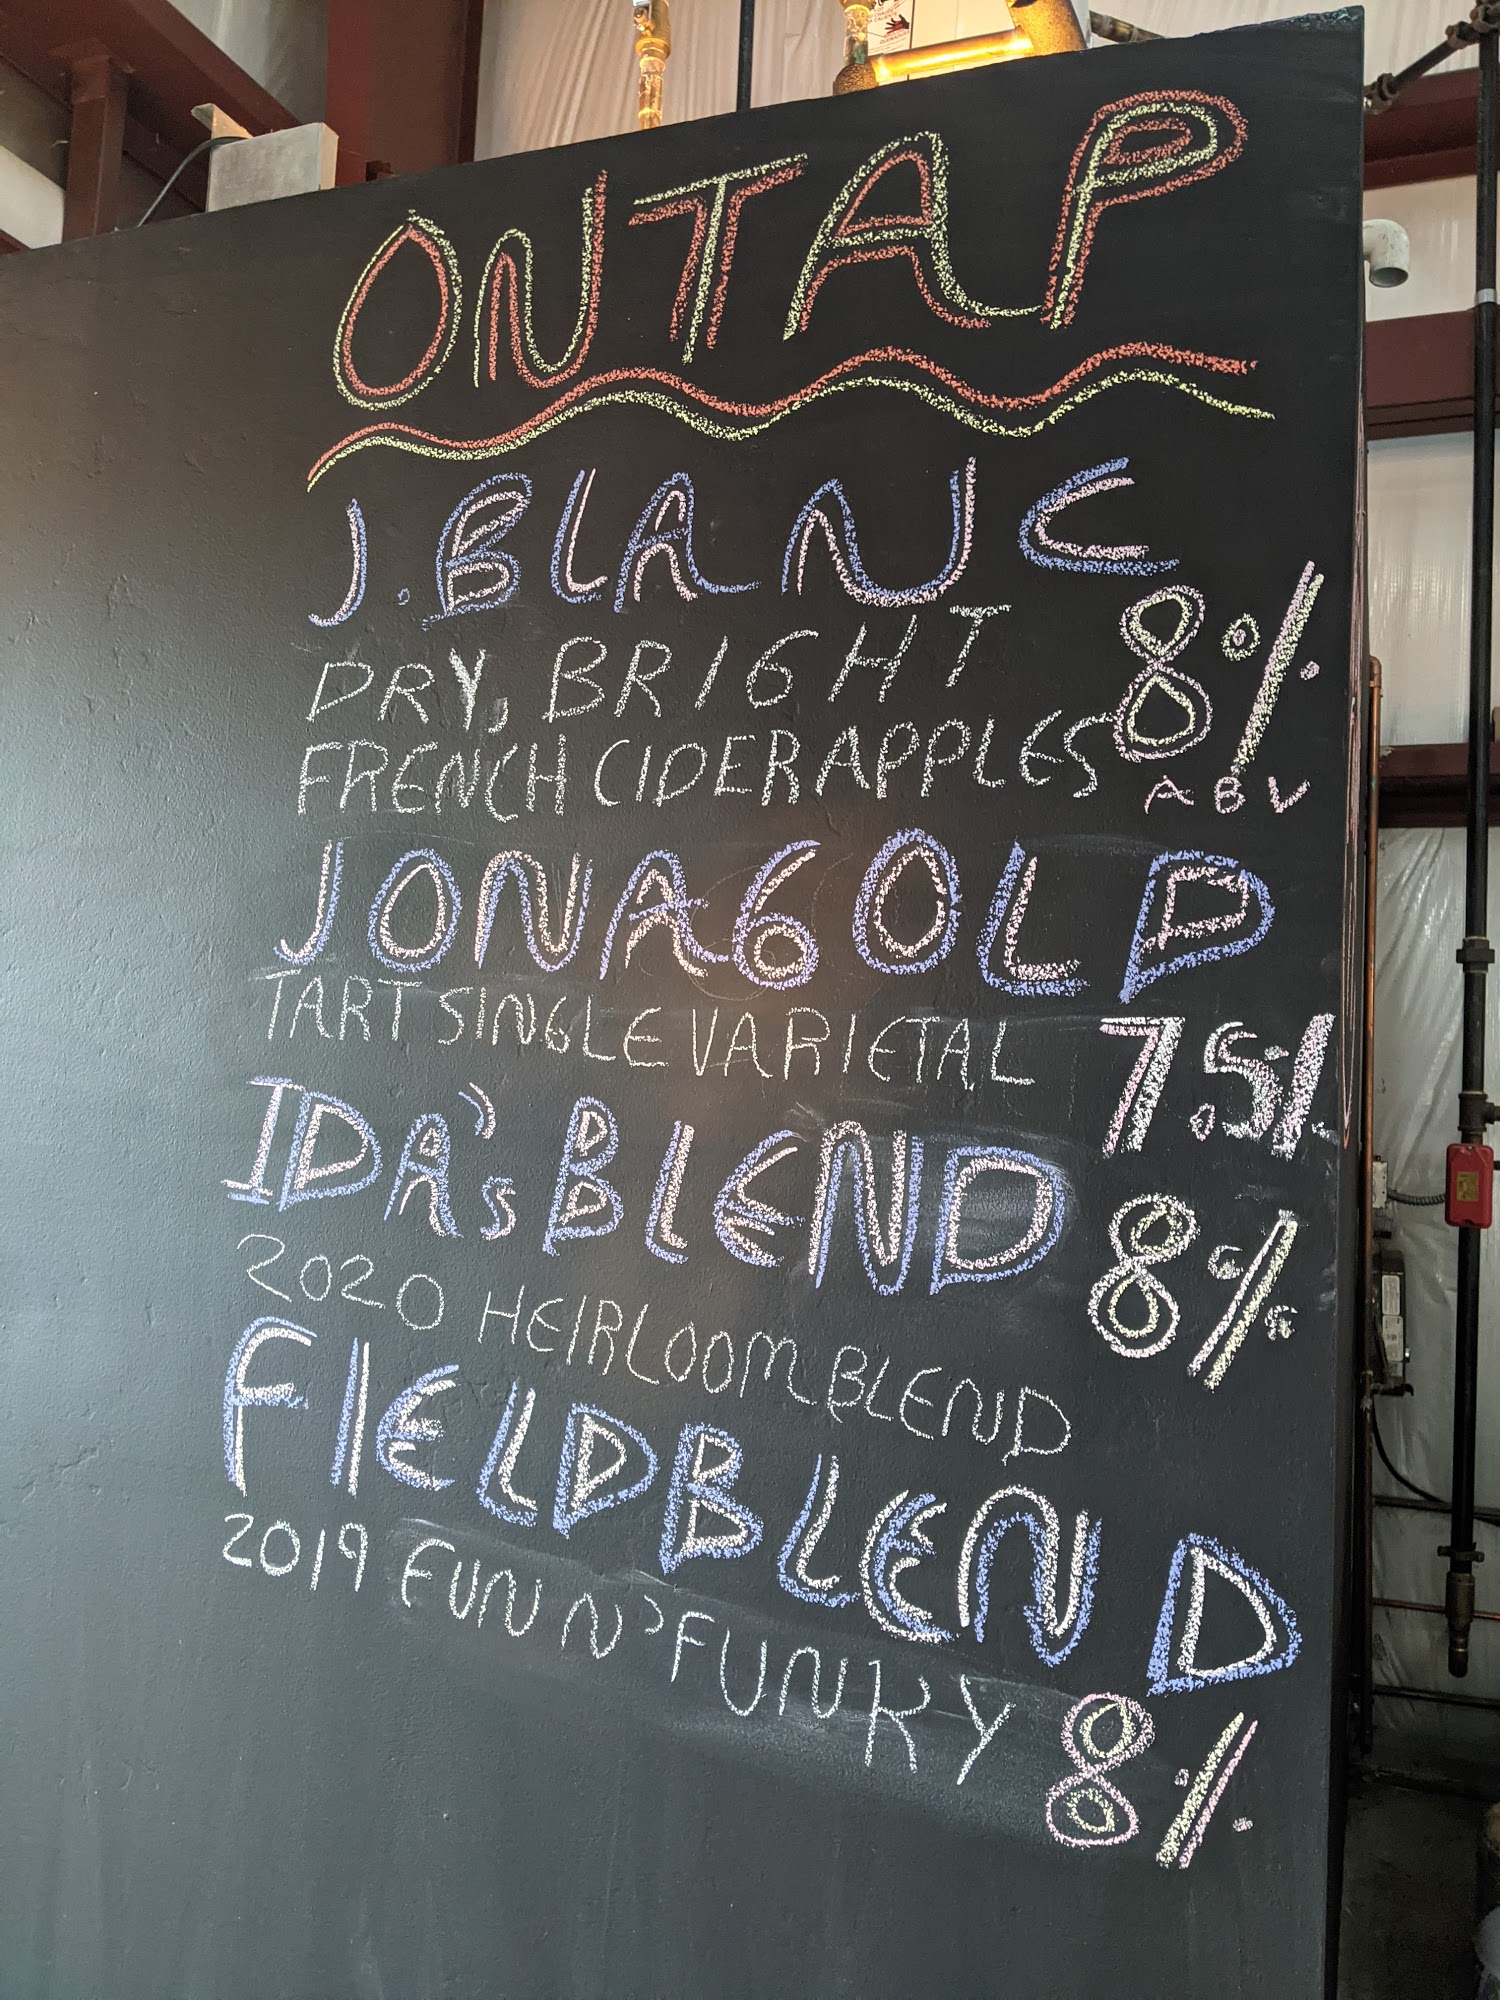 ON TAP
J. BLANC
DRY, BRIGHT
FRENCH CIDER APPLES
8%
ABV
JONAGOLD
TART SINGLE VARIETAL
7.5%
IDA'S BLEND
2020 HEIRLOOM BLEND
8%
FIELD BLEND
2019 FUN N' FUNKY
8%